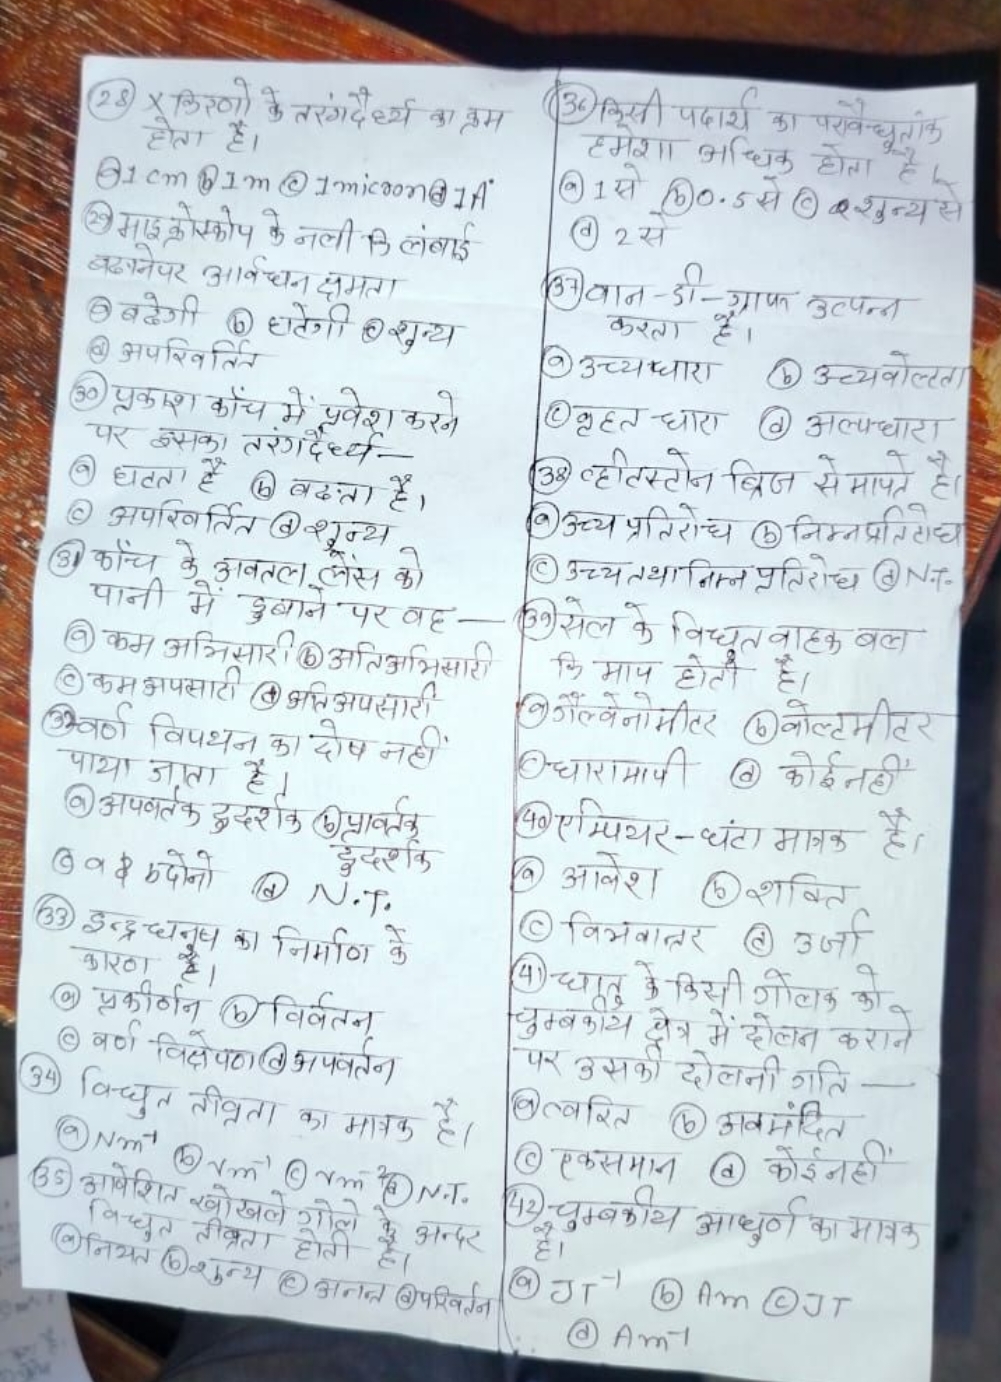 28 X किरणो के तरंगदैर्ध्य का क्रम
होता है।
a 1 cm b 1 m c 1 micoon d 1 A°
29 माइक्रोस्कोप के नली कि लंबाई
बढानेपर आर्वध्धन क्षमता
a बढेगी b घटेगी c शुन्य
d अपरिवर्तित
30 प्रकाश काँच में प्रवेश करने
पर इसका तरंगदैर्ध्य—
a घटता है b बढता है।
c अपरिवर्तित d शून्य
31 काँच के अवतल लेंस को
पानी में डुबाने पर वह —
a कम अभिसारी b अतिअभिसारी
c कम अपसारी d अति अपसारी
32 वर्ण विपथन का दोष नहीं
पाया जाता है।
a अपवर्तक दुदर्शक b प्रावर्तक
दुदर्शक
c a & b दोनो d N.T.
33 इन्द्रधनुष का निर्माण के
कारण है।
a प्रकीर्णन b विर्वतन
c वर्ण विक्षेपण d अपवर्तन
34 विध्धुत तीव्रता का मात्रक है।
a Nm⁻¹ b Vm⁻¹ c Vm² d N.T.
35 आवेशित खोखले गोले के अन्दर
विध्धुत तीव्रता होती है।
a नियत b शुन्य c अनन्त d परिवर्तन
36 किसी पदार्थ का परावैध्धूतांक
हमेशा अधिक होता है।
a 1 से b 0.5 से c शुन्य से
d 2 से
37 वान-डी-ग्राफ उत्पन्न
करता है।
a उच्यधारा b उच्यवोल्टता
c बृहत धारा d अल्पधारा
38 व्हीतस्टोन ब्रिज से मापते है।
a उच्य प्रतिरोध b निम्न प्रतिरोध
c उच्य तथा निम्न प्रतिरोध d N.T.
39 सेल के विध्धुत वाहक बल
कि माप होती है।
a गैल्वेनोमीटर b वोल्टमीटर
c धारामापी d कोई नहीं
40 एम्पियर-घंटा मात्रक है।
a आवेश b शक्ति
c विभवान्तर d उर्जा
41 धातु के किसी गोलक को
चुम्बकीय क्षेत्र में दोलन कराने
पर उसकी दोलनी गति —
a त्वरित b अवमंदित
c एकसमान d कोई नहीं
42 चुम्बकीय आधुर्ण का मात्रक
है।
a JT⁻¹ b Am c JT
d Am⁻¹